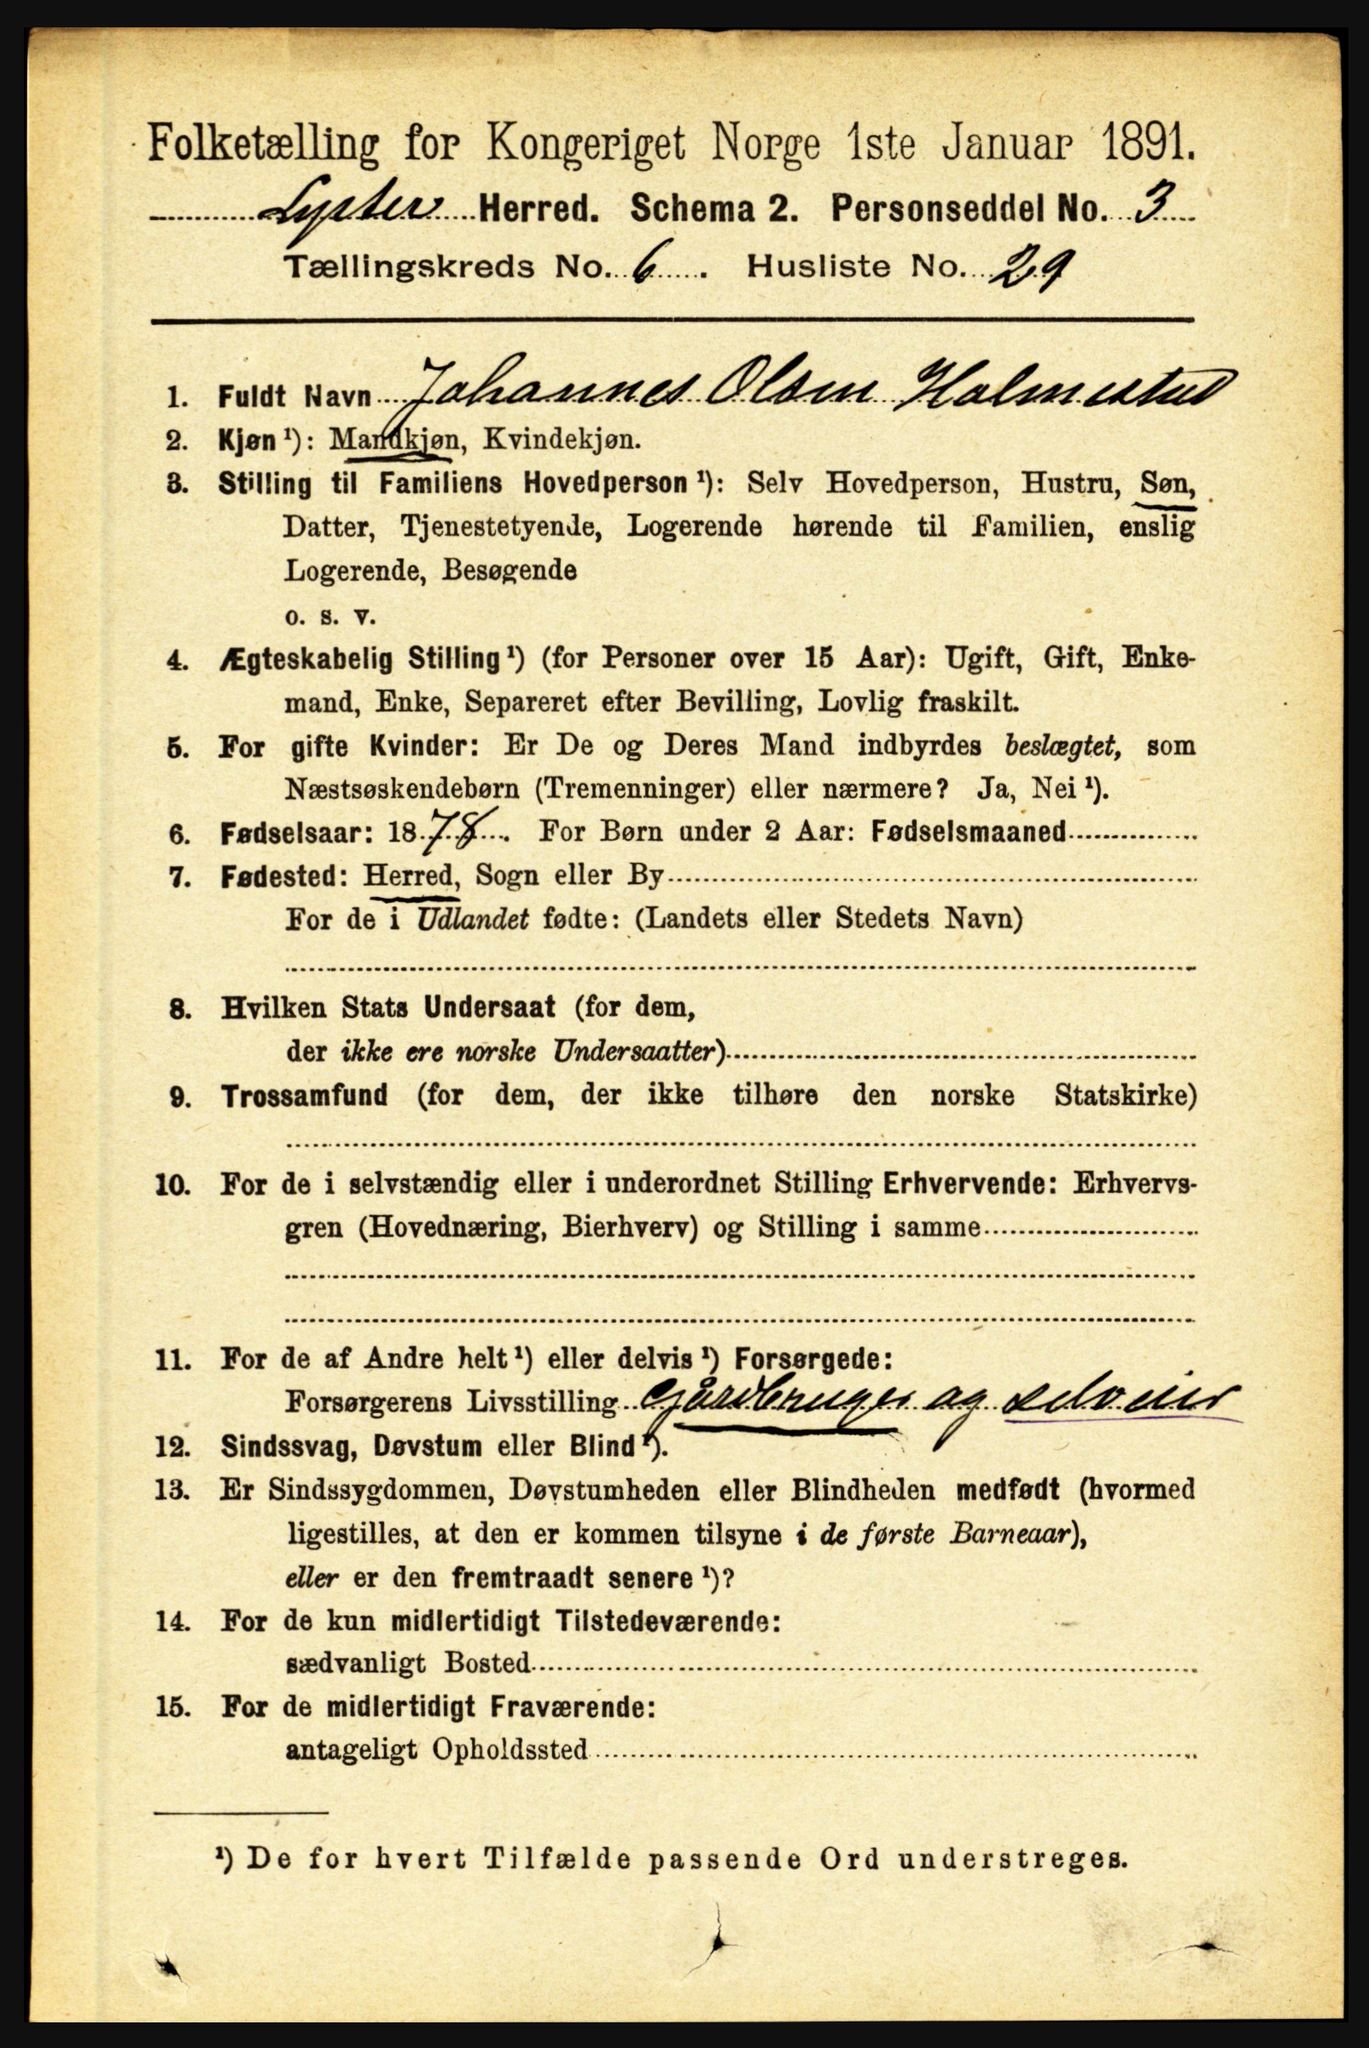 Folketælling for Kongeriget Norge 1ste Januar 1891.
Lyster Herred. Schema 2. Personseddel No. 3
Tællingskreds No. 6. Husliste No. 29
1. Fuldt Navn Johannes Olsen Holmestad
2. Kjøn ¹): Mandkjøn, Kvindekjøn.
3. Stilling til Familiens Hovedperson ¹): Selv Hovedperson, Hustru, Søn,
Datter, Tjenestetyende, Logerende hørende til Familien, enslig
Logerende, Besøgende
o. s. v.
4. Ægteskabelig Stilling ¹) (for Personer over 15 Aar): Ugift, Gift, Enke-
mand, Enke, Separeret efter Bevilling, Lovlig fraskilt.
5. For gifte Kvinder: Er De og Deres Mand indbyrdes beslægtet, som
Næstsøskendebørn (Tremenninger) eller nærmere? Ja, Nei ¹).
6. Fødselsaar: 1878. For Børn under 2 Aar: Fødselsmaaned
7. Fødested: Herred, Sogn eller By
For de i Udlandet fødte: (Landets eller Stedets Navn)
8. Hvilken Stats Undersaat (for dem,
der ikke ere norske Undersaatter)
9. Trossamfund (for dem, der ikke tilhøre den norske Statskirke)
10. For de i selvstændig eller i underordnet Stilling Erhvervende: Erhvervs-
gren (Hovednæring, Bierhverv) og Stilling i samme
11. For de af Andre helt ¹) eller delvis ¹) Forsørgede:
Forsørgerens Livsstilling Gårdbruger og selveier
12. Sindssvag, Døvstum eller Blind ¹).
13. Er Sindssygdommen, Døvstumheden eller Blindheden medfødt (hvormed
ligestilles, at den er kommen tilsyne i de første Barneaar),
eller er den fremtraadt senere ¹)?
14. For de kun midlertidigt Tilstedeværende:
sædvanligt Bosted
15. For de midlertidigt Fraværende:
antageligt Opholdssted
¹) De for hvert Tilfælde passende Ord understreges.